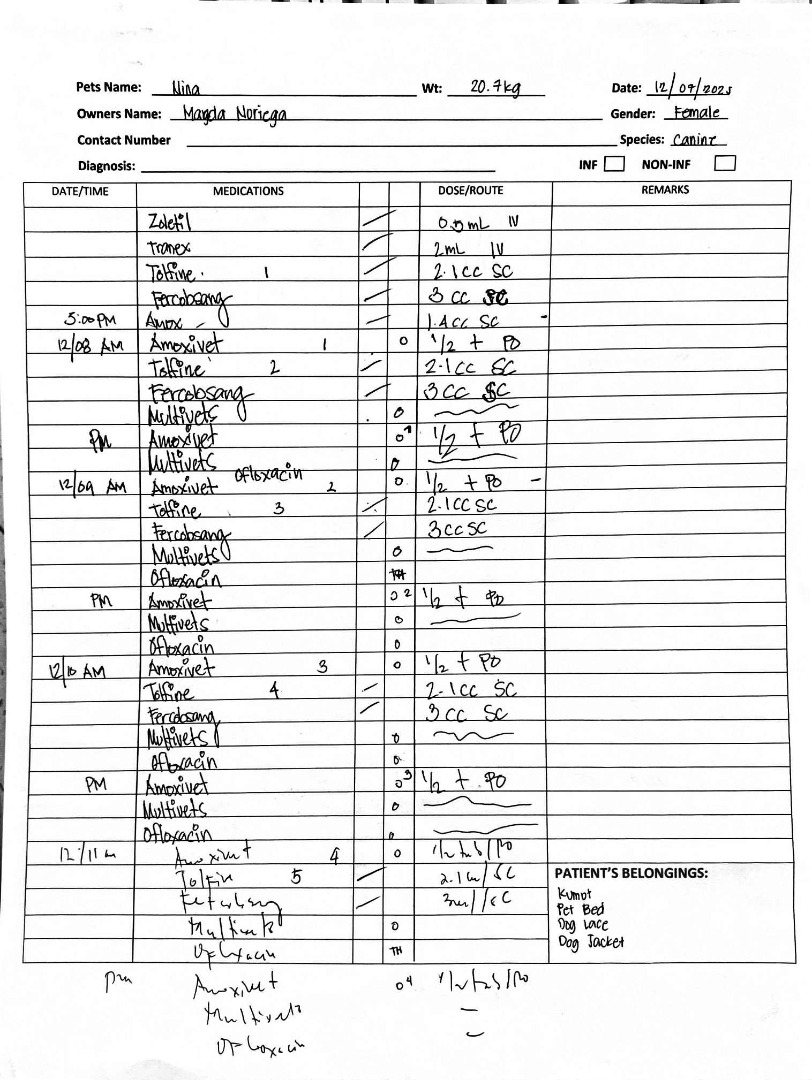 Pets Name: Nina Wt: 20.7kg Date: 12/07/2025
Owners Name: Magda Noriega Gender: Female
Contact Number Species: Canine
Diagnosis: INF NON-INF
DATE/TIME MEDICATIONS DOSE/ROUTE REMARKS
Zoletil 0.5mL IV
Tranex 2mL IV
Tolfine 1 2.1cc SC
Fercobsang 3cc SC
5:00PM Amox 1.4cc SC
12/08 AM Amoxivet 1 0 1/2 t PO
Tolfine 2 2.1cc SC
Fercobsang 3cc SC
Multivets 0
PM Amoxivet 0 1 1/2 t PO
Multivets 0
12/09 AM Amoxivet Ofloxacin 2 0 1/2 t PO
Tolfine 3 2.1cc SC
Fercobsang 3cc SC
Multivets 0
Ofloxacin TH
PM Amoxivet 0 2 1/2 t PO
Multivets 0
Ofloxacin 0
12/10 AM Amoxivet 3 0 1/2 t PO
Tolfine 4 2.1cc SC
Fercobsang 3cc SC
Multivets 0
Ofloxacin 0
PM Amoxivet 0 3 1/2 t PO
Multivets 0
Ofloxacin 0
12/11 Amoxivet 4 0 1/2 tab/PO
Tolfin 5 2.1 /SC
3 /SC
Multivets 0
Ofloxacin TH
PATIENT'S BELONGINGS:
Kumot
Pet Bed
Dog Lace
Dog Jacket
pm Amoxivet 0 4 1/2 tab/PO
Multivets
Ofloxacin